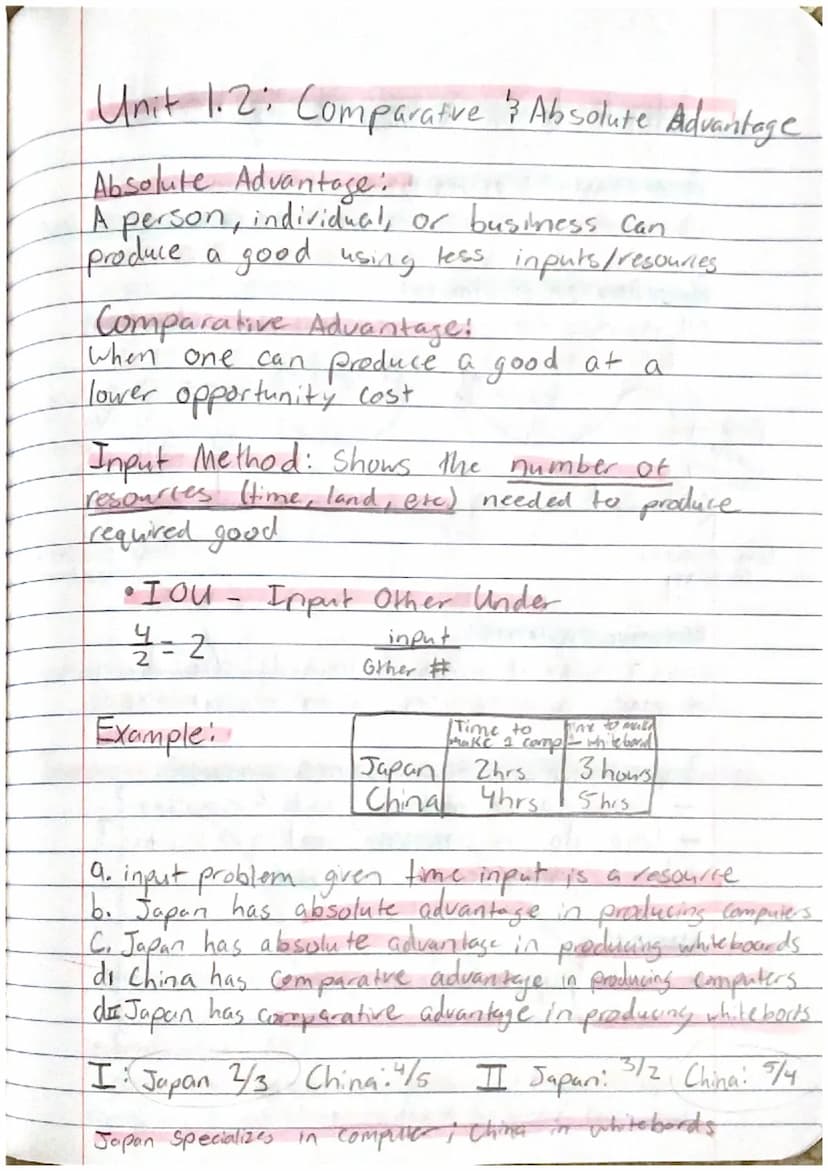 Unit 1.2: Comparative & Absolute Advantage
Absolute Advantage:
A person, individual, or business can
produce a good using less inputs/resources
Comparative Advantage:
when one can produce a good at a
lower opportunity cost
Input Method: Shows the number of
resources (time, land, etc) needed to produce
required good
• IOU - Input Other Under
4/2 = 2 input
Other #
Example:
Time to make 1 comp Time to make 1 whiteboard
Japan 2hrs 3 hours
China 4hrs 5hrs
a. input problem given time input is a resource
b. Japan has absolute advantage in producing computers
C. Japan has absolute advantage in producing whiteboards
dI China has comparatve advantage in producing computers
dII Japan has comparative advantage in producing whiteborts
I: Japan 2/3 China: 4/5 II Japan: 3/2 China: 5/4
Japan specializes in computer; China in whitebords